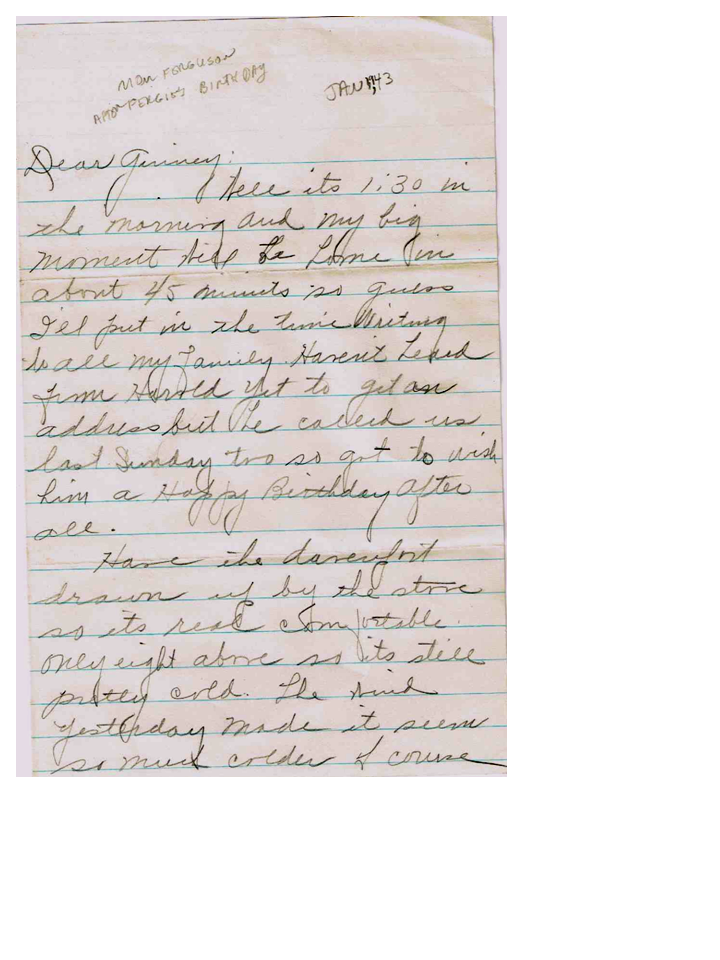 MOM FERGUSON
AMD FERGIE'S BIRTHDAY
JAN 1943
Dear Ginney:
Well its 1:30 in
the morning and my big
moment will be home in
about 45 minuts so guess
I'll put in the time writing
to all my family. Haven't heard
from Harold yet to get an
address but he called us
last Sunday two so got to wish
him a Happy Birthday after
all.
Have the davenport
drawn up by the stove
so its real comfortable.
Only eight above so its still
pretty cold. The wind
yesterday made it seem
so much colder of course